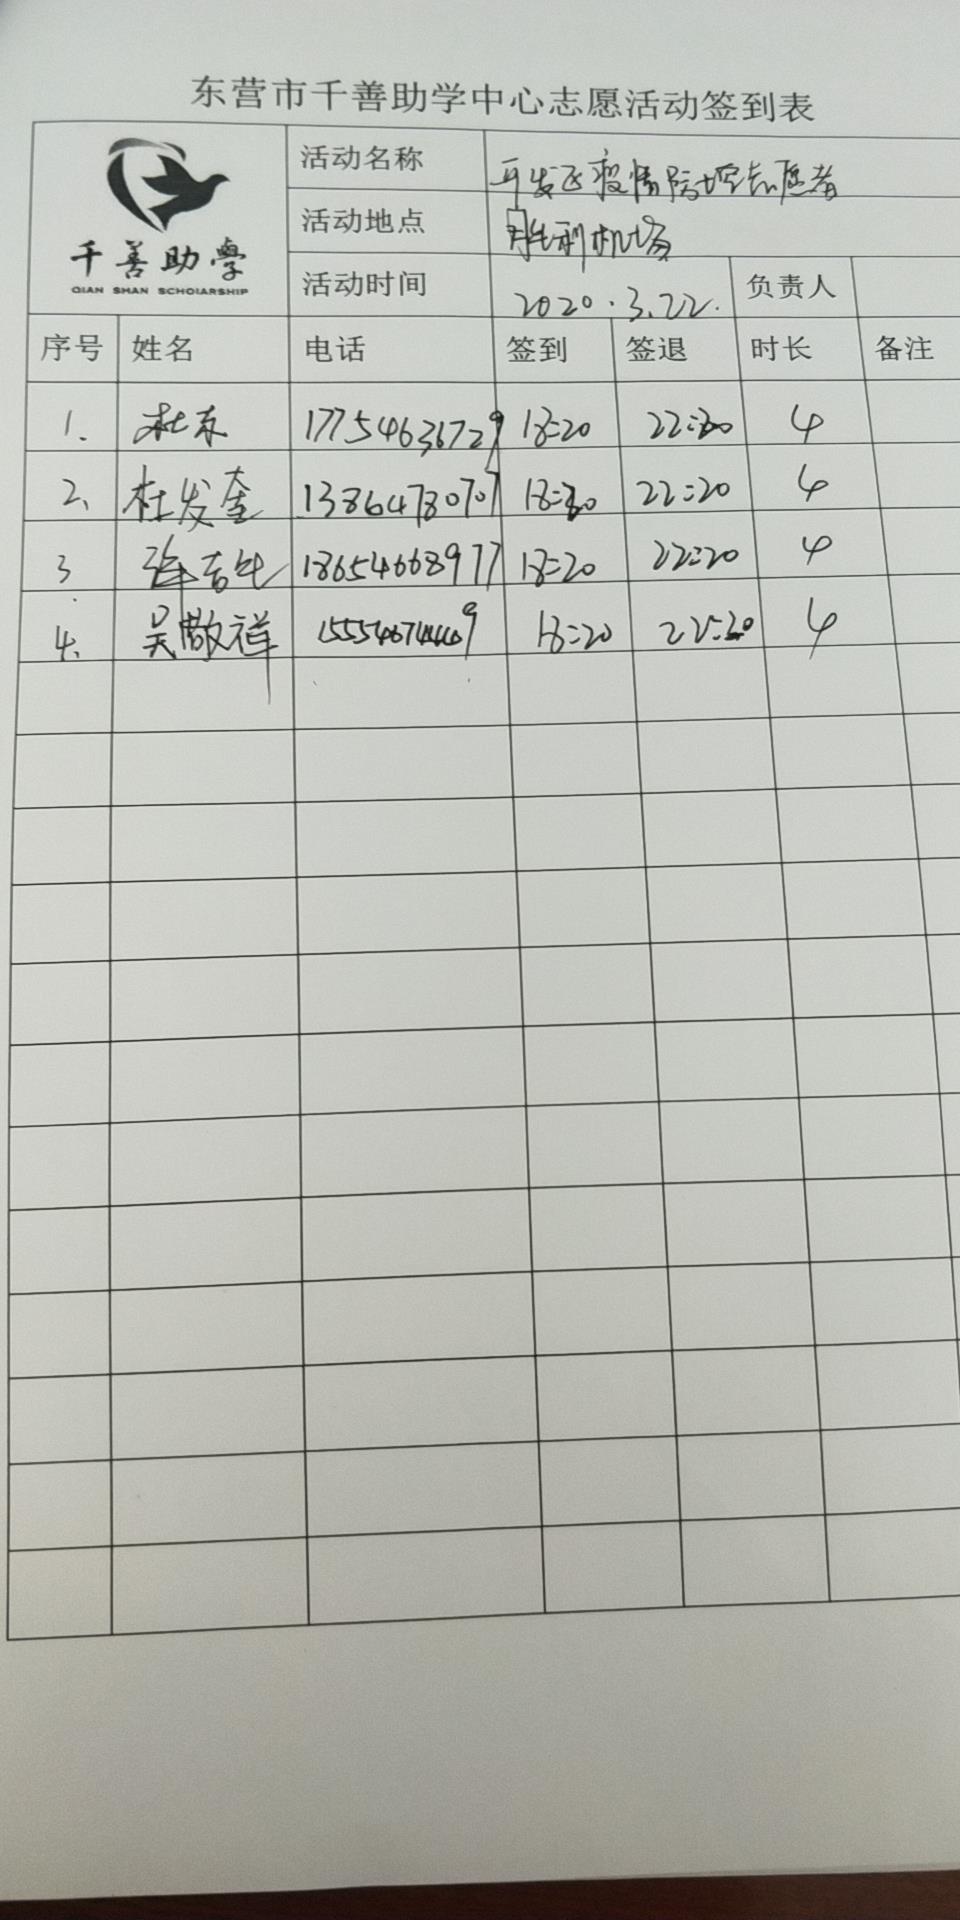 东营市千善助学中心志愿活动签到表
千善助學
QIAN SHAN SCHOLARSHIP
活动名称 开发区疫情防控志愿者
活动地点 胜利机场
活动时间 2020.3.22. 负责人
序号 姓名 电话 签到 签退 时长 备注
1. 杜东 17754636729 18:20 22:20 4
2、 杜发奎 13864780707 18:20 22:20 4
3 18654668977 18:20 22:20 4
4. 吴敬祥 18:20 22:20 4